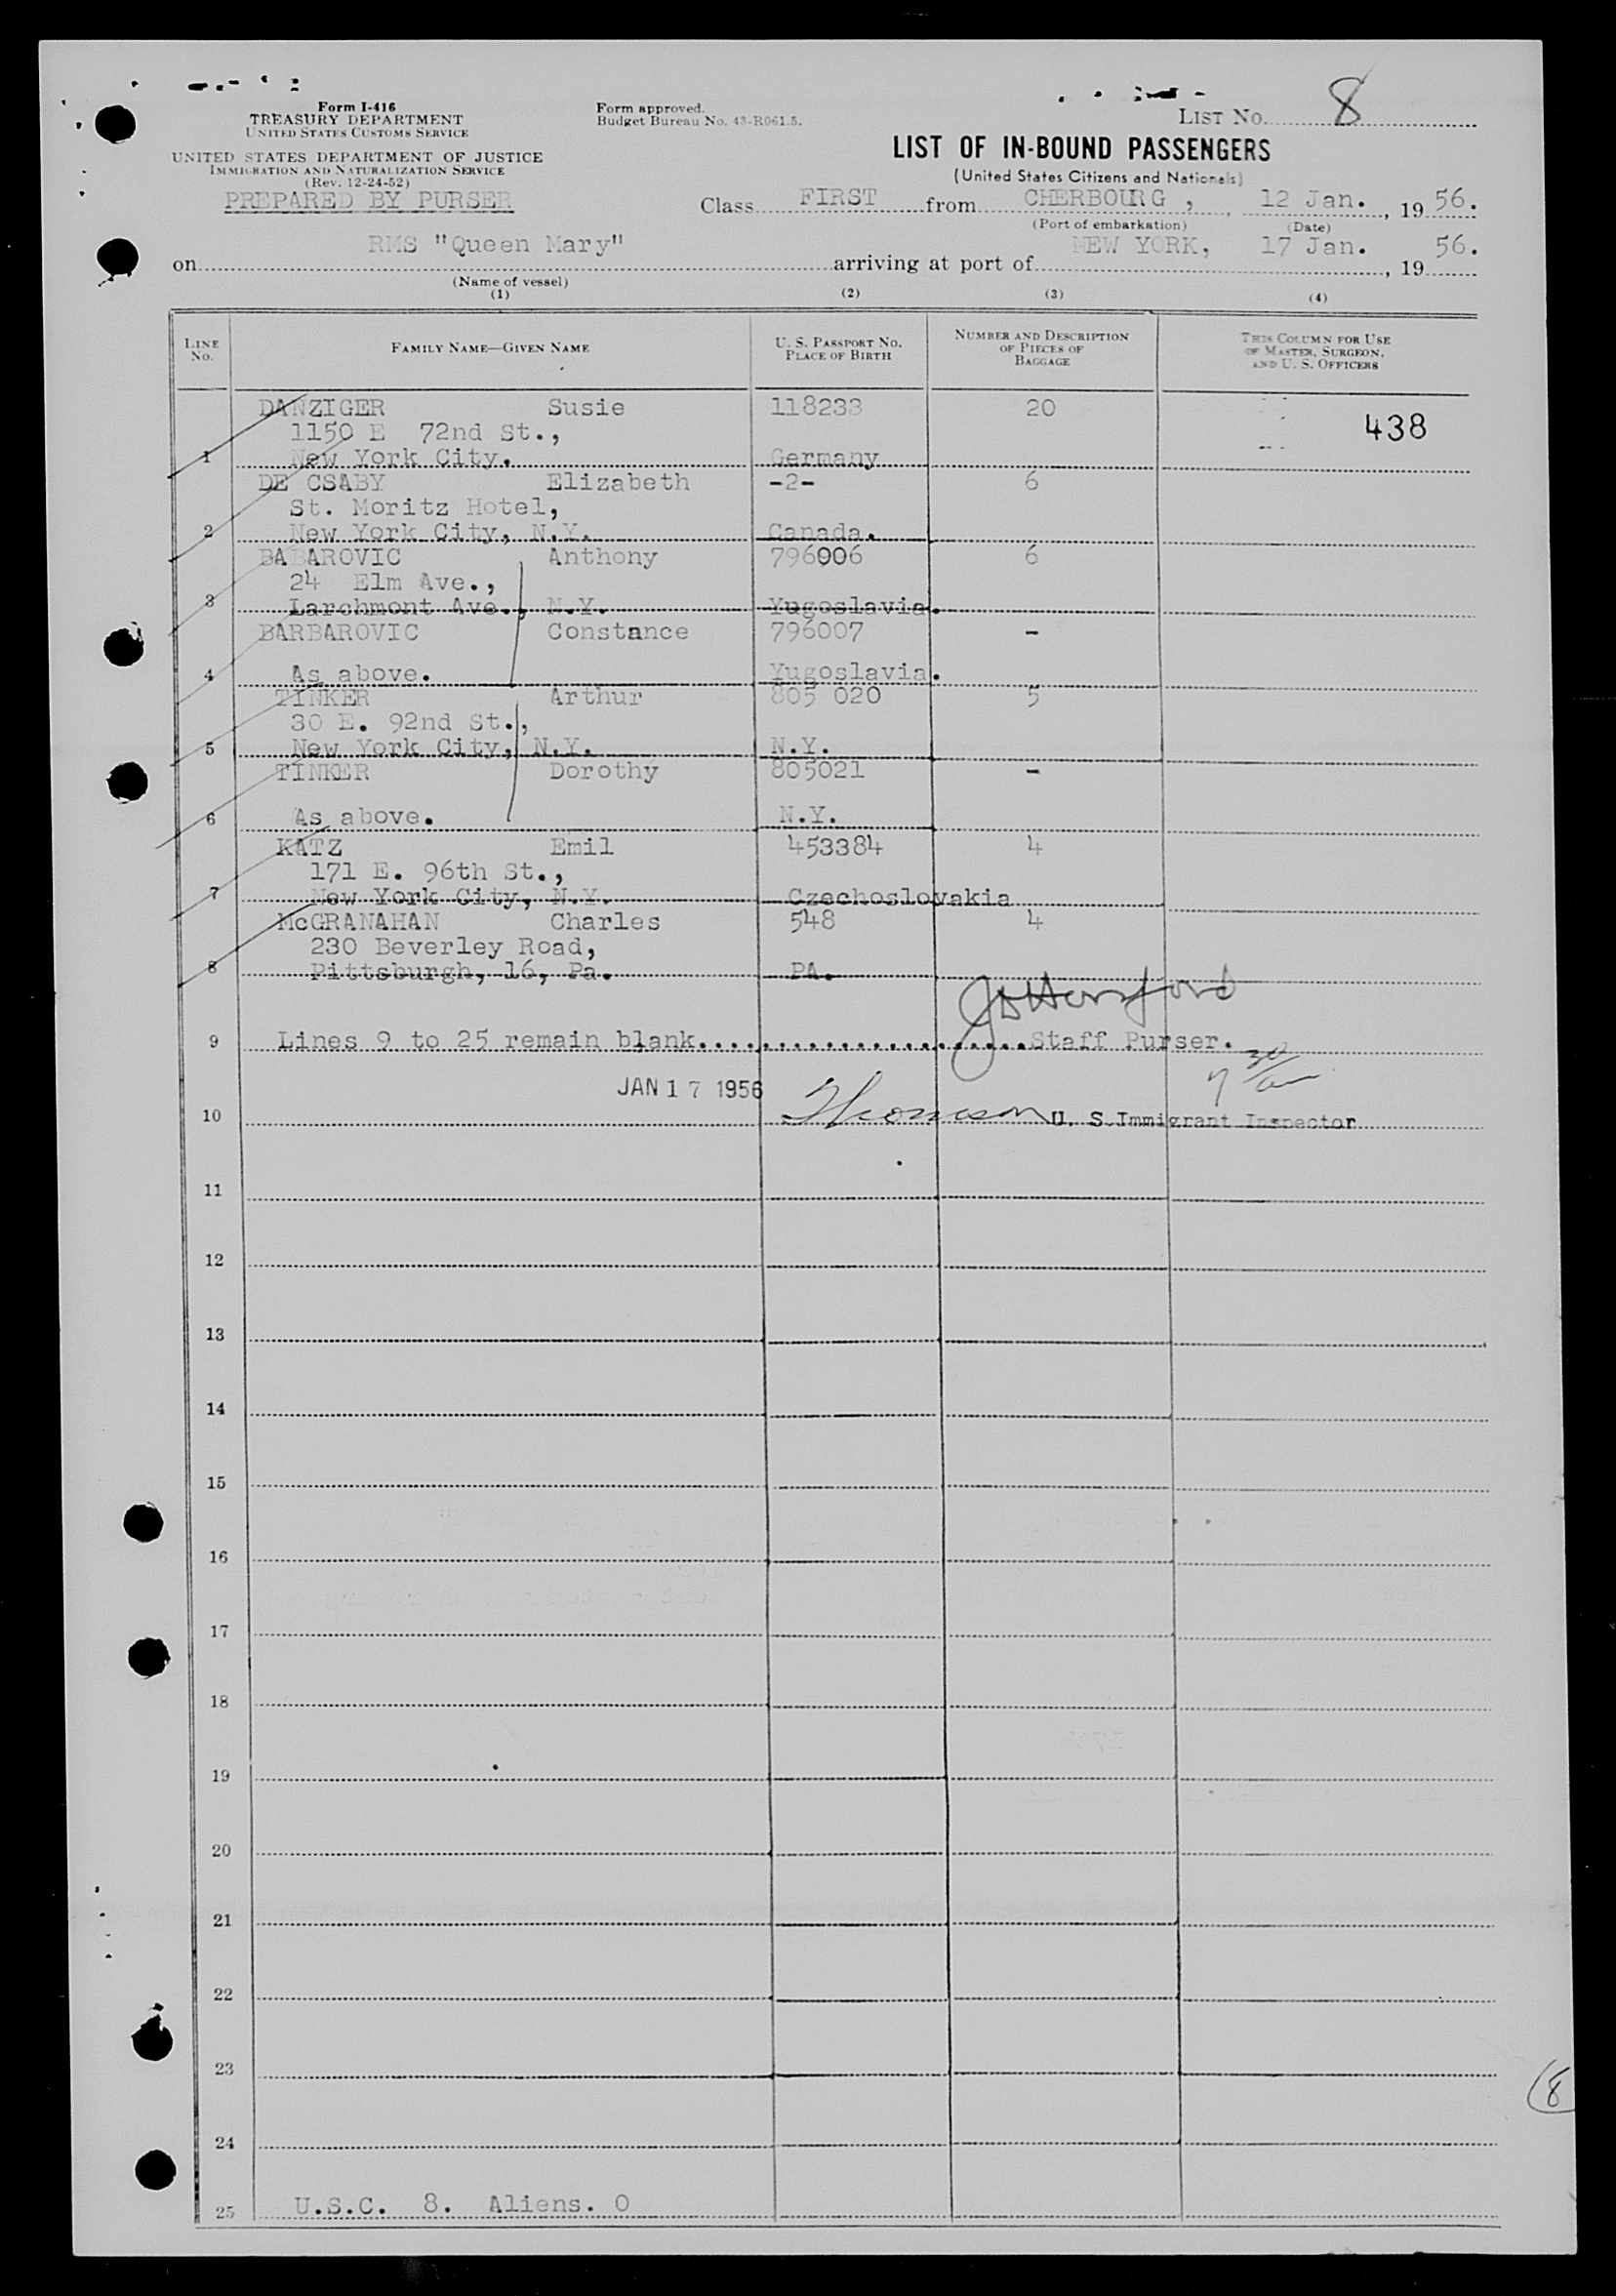 Form I-416
TREASURY DEPARTMENT
UNITED STATES CUSTOMS SERVICE
UNITED STATES DEPARTMENT OF JUSTICE
IMMIGRATION AND NATURALIZATION SERVICE
(Rev. 12-24-52)
PREPARED BY PURSER
Form approved.
Budget Bureau No. 43-R061.5.
LIST NO. 8
LIST OF IN-BOUND PASSENGERS
(United States Citizens and Nationals)
Class FIRST from CHERBOURG , 12 Jan. , 19 56.
(Port of embarkation) (Date)
on RMS "Queen Mary" arriving at port of NEW YORK, 17 Jan. , 19 56.
(Name of vessel)
(1) (2) (3) (4)
LINE NO. FAMILY NAME—GIVEN NAME U. S. PASSPORT NO. PLACE OF BIRTH NUMBER AND DESCRIPTION OF PIECES OF BAGGAGE THIS COLUMN FOR USE OF MASTER, SURGEON, AND U. S. OFFICERS
DANZIGER Susie 118233 20
1150 E 72nd St., 438
1 New York City. Germany
DE CSABY Elizabeth -2- 6
St. Moritz Hotel,
2 New York City, N.Y. Canada.
BABAROVIC Anthony 796006 6
24 Elm Ave.,
3 Larchmont Ave., N.Y. Yugoslavia.
BARBAROVIC Constance 796007 -
4 As above. Yugoslavia.
TINKER Arthur 805 020 5
30 E. 92nd St.,
5 New York City, N.Y. N.Y.
TINKER Dorothy 805021 -
6 As above. N.Y.
KATZ Emil 453384 4
171 E. 96th St.,
7 New York City, N.Y. Czechoslovakia
McGRANAHAN Charles 548 4
230 Beverley Road,
8 Pittsburgh, 16, Pa. PA.
9 Lines 9 to 25 remain blank.....................Staff Purser.
JAN 17 1956
10 Thomson U. S. Immigrant Inspector
11
12
13
14
15
16
17
18
19
20
21
22
23
8
24
25 U.S.C. 8. Aliens. 0